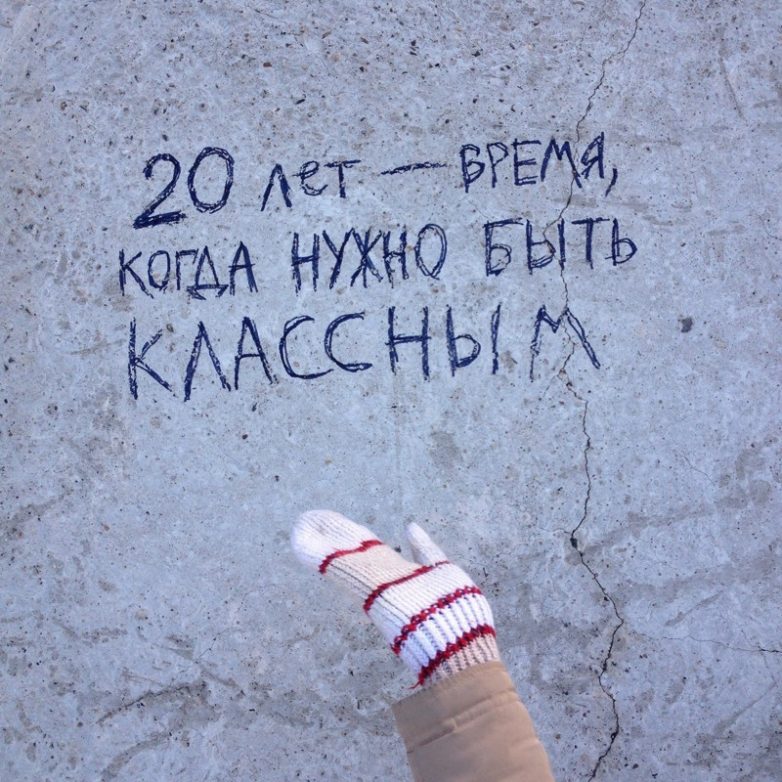 20 лет — ВРЕМЯ,
КОГДА НУЖНО БЫТЬ
КЛАССНЫМ